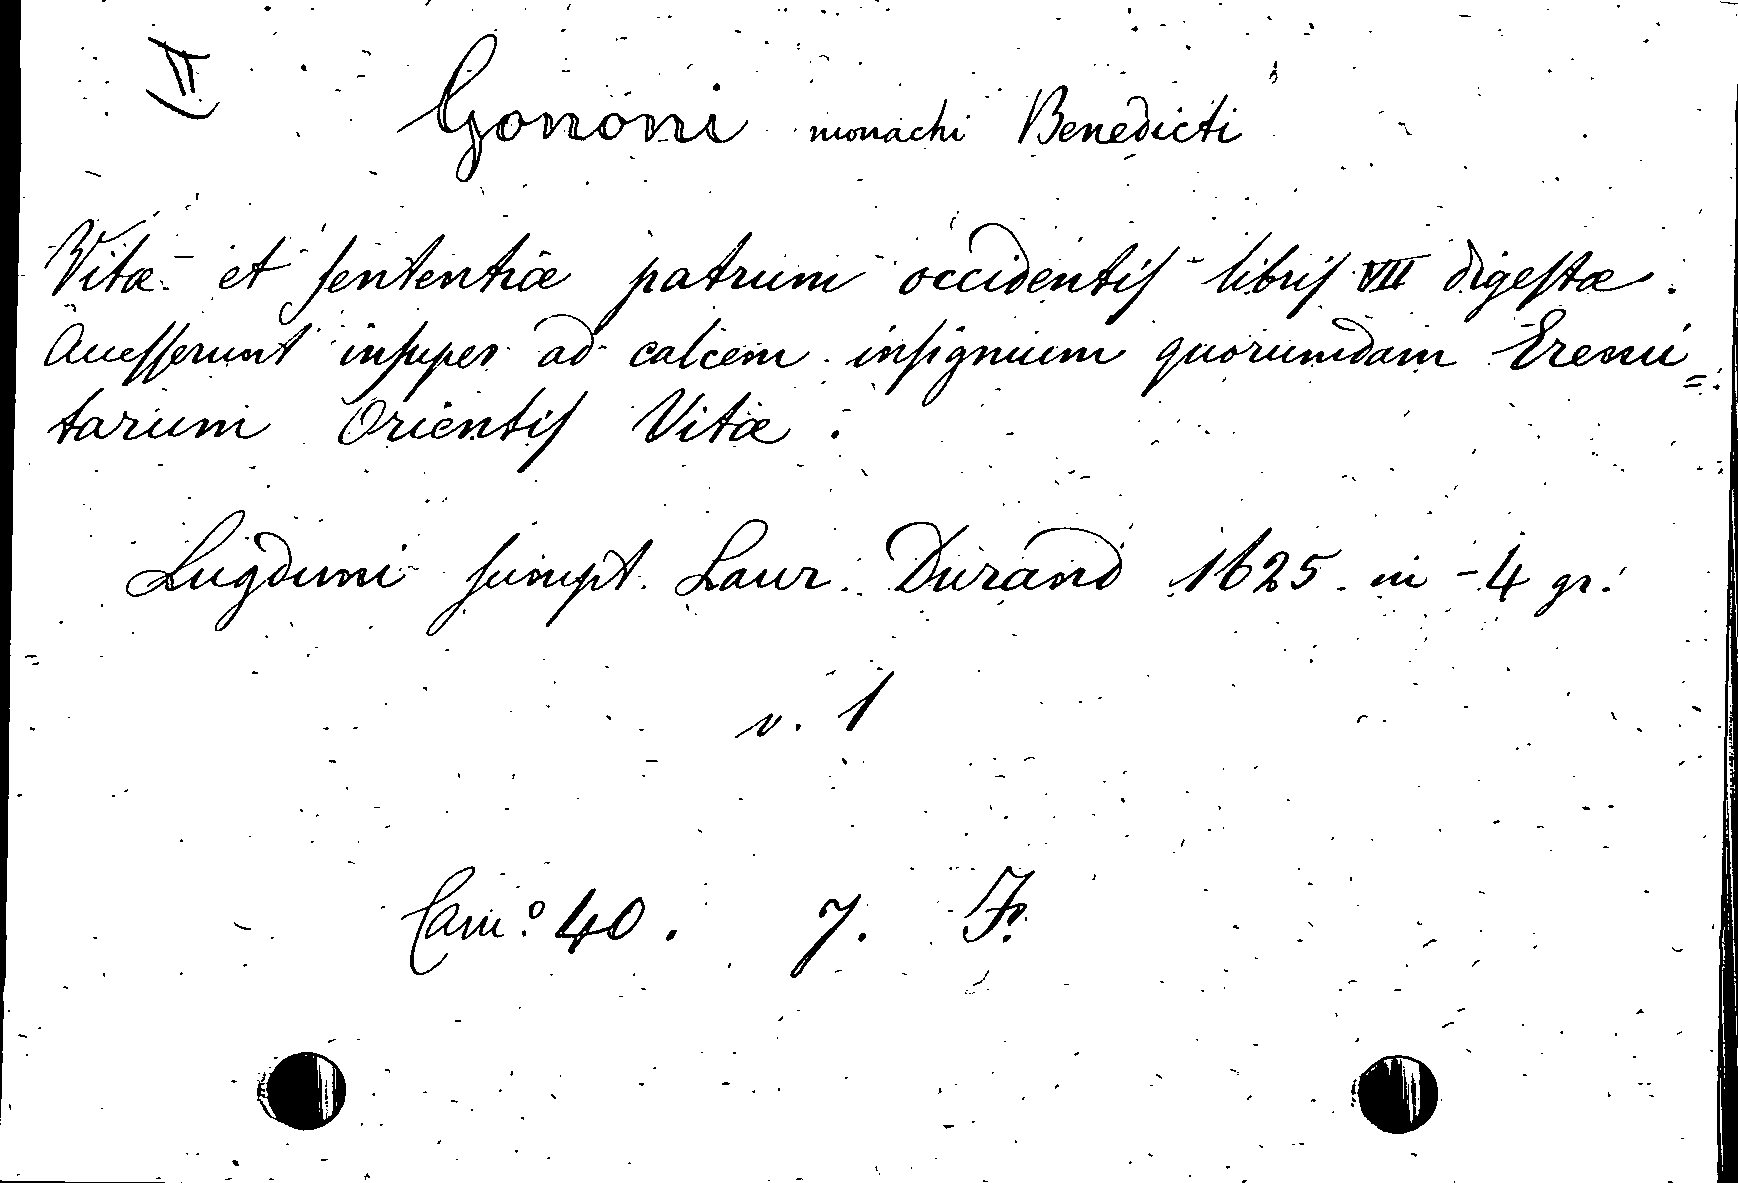 II
Gononi monachi Benedicti
Vitæ et sententiæ patrum occidentis libris VII digestæ.
Auesserunt insuper ad calcem insignium quorumdam Eremi=
tarum Orientis Vitæ.
Lugduni sumpt. Laur. Durand 1625. in-4 gr.
v. 1
Cam.º 40. 7. F.